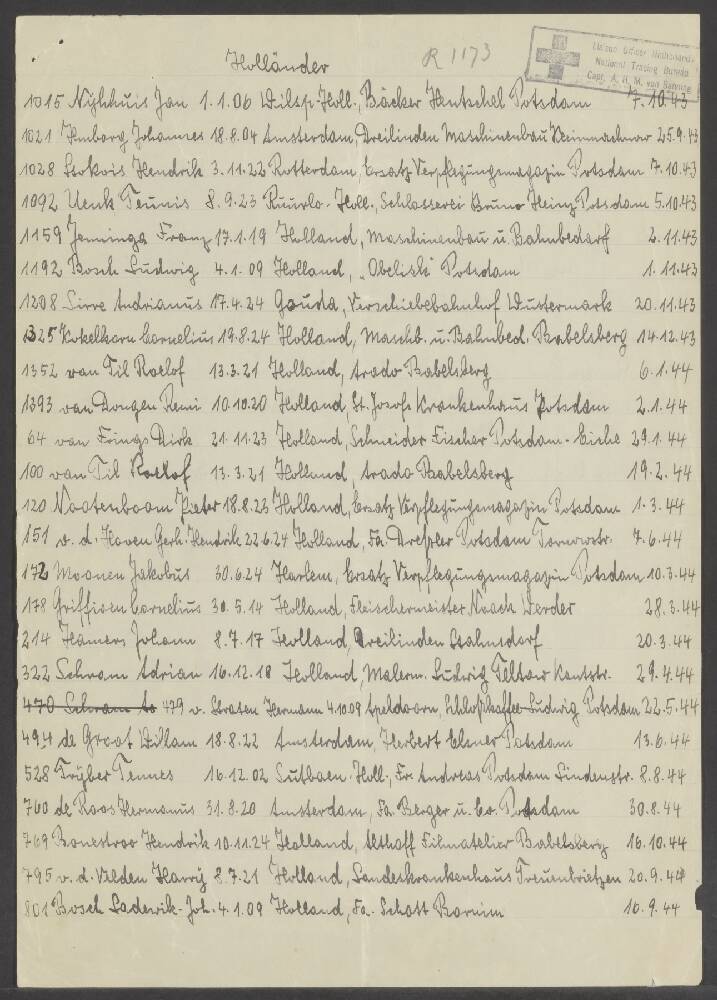 Holländer
R 1173
Liaison Officer Netherlands
National Tracing Bureau
Capt. A. H. M. van
1015 Nijhhuis Jan 1.1.06 Wilsp-Holl., Bäcker Hentschel Potsdam 7.10.43
1021 Hmborg Johannes 18.8.04 Amsterdam, Dreilinden Maschinenbau Kleinmachnow 25.9.43
1028 Stokvis Hendrik 3.11.22 Rotterdam, Ersatz Verpflegungsmagazin Potsdam 7.10.43
1092 Uenk Teunis 8.9.23 Ruurlo-Holl., Schlosserei Bruno Heinz Potsdam 5.10.43
1159 Jenninga Franz 17.1.19 Holland, Maschinenbau u. Bahnbedarf 2.11.43
1192 Bosch Ludwig 4.1.09 Holland, "Obelisk" Potsdam 1.11.43
1208 Sirre Andrianus 17.4.24 Gouda, Verschiebebahnhof Wustermark 20.11.43
1325 Kokelkorn Cornelius 19.8.24 Holland, Maschb. u. Bahnbed. Babelsberg 14.12.43
1352 van Til Roelof 13.3.21 Holland, Arado Babelsberg 6.1.44
1393 van Dongen Remi 10.10.20 Holland, St. Josefs Krankenhaus Potsdam 2.1.44
64 van Frings Dirk 21.11.23 Holland, Schneider Fischer Potsdam-Eiche 29.1.44
100 van Til Roelof 13.3.21 Holland, Arado Babelsberg 19.2.44
120 Nootenboom Pieter 18.8.23 Holland, Ersatz Verpflegungsmagazin Potsdam 1.3.44
151 v. d. Hoven Gerh. Hendrik 22.6.24 Holland, Fa. Dreßler Potsdam Tornowstr. 7.6.44
172 Moonen Jakobus 30.6.24 Harlem, Ersatz Verpflegungsmagazin Potsdam 10.3.44
178 Griffioen Cornelius 30.5.14 Holland, Fleischermeister Noack Werder 28.3.44
214 Hamers Johann 8.7.17 Holland, Dreilinden Stahnsdorf 20.3.44
322 Schram Adrian 16.12.18 Holland, Malerm. Ludwig Teltow Kantstr. 29.4.44
470 Schram A 479 v. Straten Hermann 4.10.09 Apeldoorn, Schloßkaffee Ludwig Potsdam 22.5.44
494 de Groot Willam 18.8.22 Amsterdam, Herbert Elsner Potsdam 13.6.44
528 Trijber Tennes 16.12.02 Holl., Fr. Andreas Potsdam Lindenstr. 8.8.44
760 de Roos Hermanus 31.8.20 Amsterdam, Fa. Berger u. Co. Potsdam 30.8.44
769 Bonestroo Hendrik 10.11.24 Holland, Althoff Filmatelier Babelsberg 16.10.44
795 v. d. Velden Harrÿ 8.7.21 Holland, Landeskrankenhaus Treuenbrietzen 20.9.44
801 Bosch Lodewik-Joh. 4.1.09 Holland, Fa. Schott Bornim 10.9.44